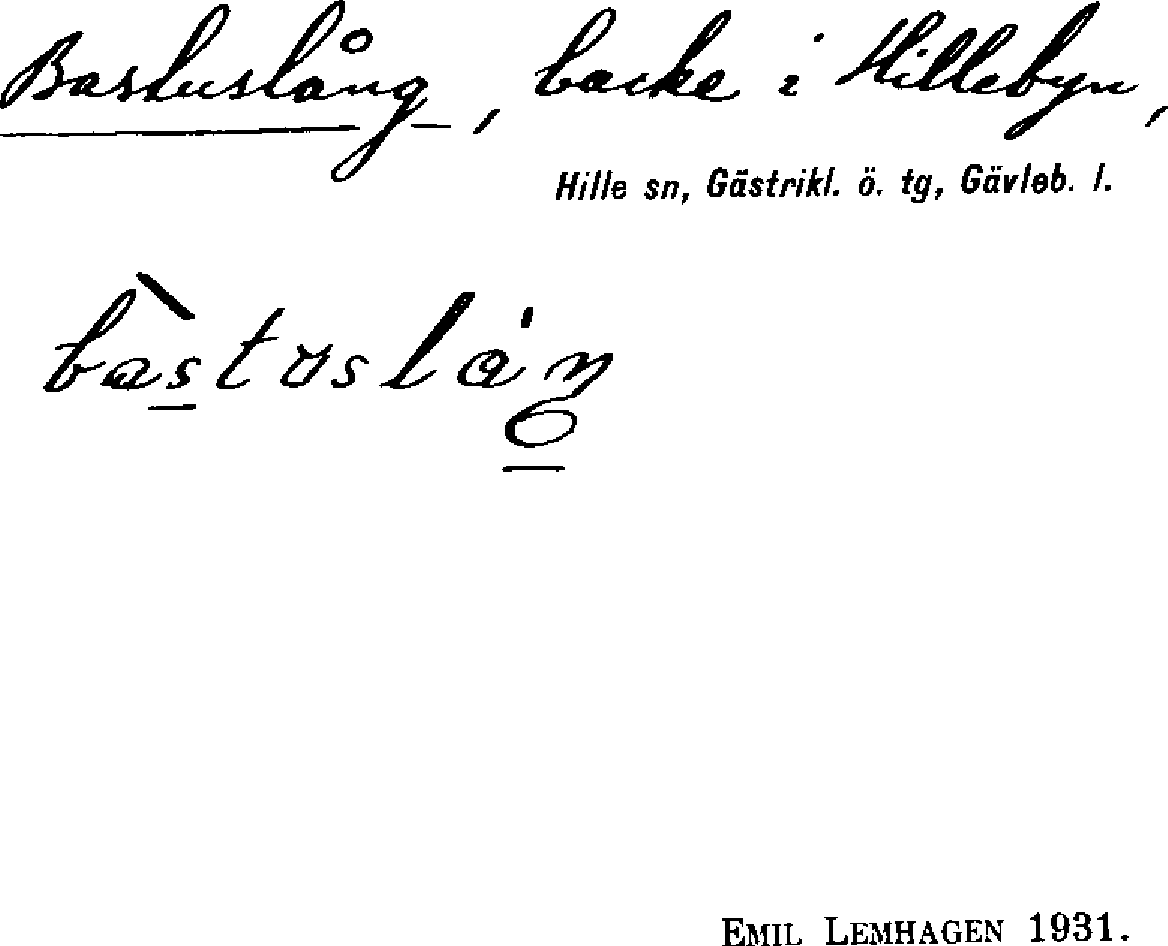 Bastuslång, backe i Hillebyn,
Hille sn, Gästrikl. ö. tg, Gävleb. l.
bàstɷslåŋ
EMIL LEMHAGEN 1931.